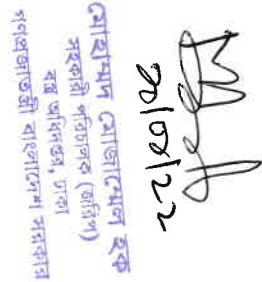 মোহাম্মদ মোজাম্মেল হক
সহকারি পরিচালক (জরিপ)
বস্ত্র অধিদপ্তর, ঢাকা
গণপ্রজাতন্ত্রী বাংলাদেশ সরকার